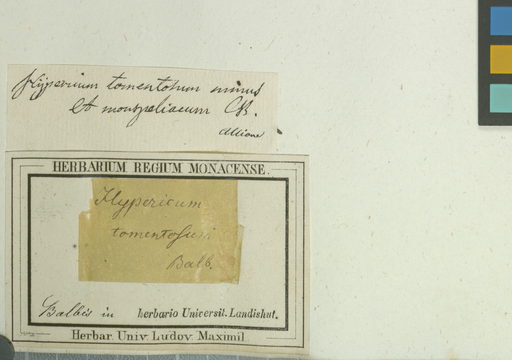 Hypericum tomentosum minus
et monspeliacum CB.
Allione
HERBARIUM REGIUM MONACENSE.
Hypericum
tomentosum
Balb.
Balbis in herbario Universit. Landishut.
Herbar. Univ. Ludov. Maximil.